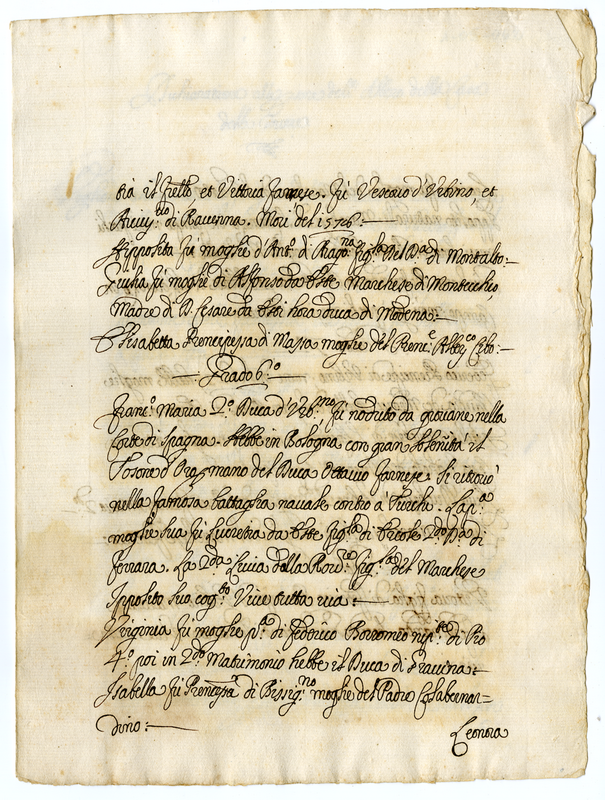 ria il fretto, et Vittoria Farnese. Fù Vescovo d'Urbino, et
Arciv.vo di Ravenna. Morì del 1578:—
Hippolita fù moglie d'Ant.o di Rag.na fig.la Del D.a di Montalto:—
Giulia fù moglie di Alfonso da Este Marchese di Montecchio,
Madre di D. Cesare da Este hora duca di Modena:—
Elisabetta Prencipessa di Massa moglie del Prenc.e Alber.co Cibo:—
— Grado 6.o —
Franc.o Maria 2.o Duca d'Urb.no fù nodrito da giovane nella
Corte di Spagna. Hebbe in Bologna con gran solennità il
Tosone d'Oro p mano del Duca Ottavio Farnese. Si ritrovò
nella famosa battaglia navale contro à Turchi. La p.a
moglie sua fù Lucretia da Este fig.la di Ercole 2.do D.a di
Ferrara. La 2.da Livia dalla Rov.re fig.la del Marchese
Ippolito suo cog.no Vive tutta via:—
Virginia fù moglie p.a di Federico Borromeo nip.te di Pio
4.o poi in 2.do Matrimonio hebbe il Duca di Gravina:—
Isabella fù Prencip.sa di Bisig.no moglie del Padre
dino:—
Leonora